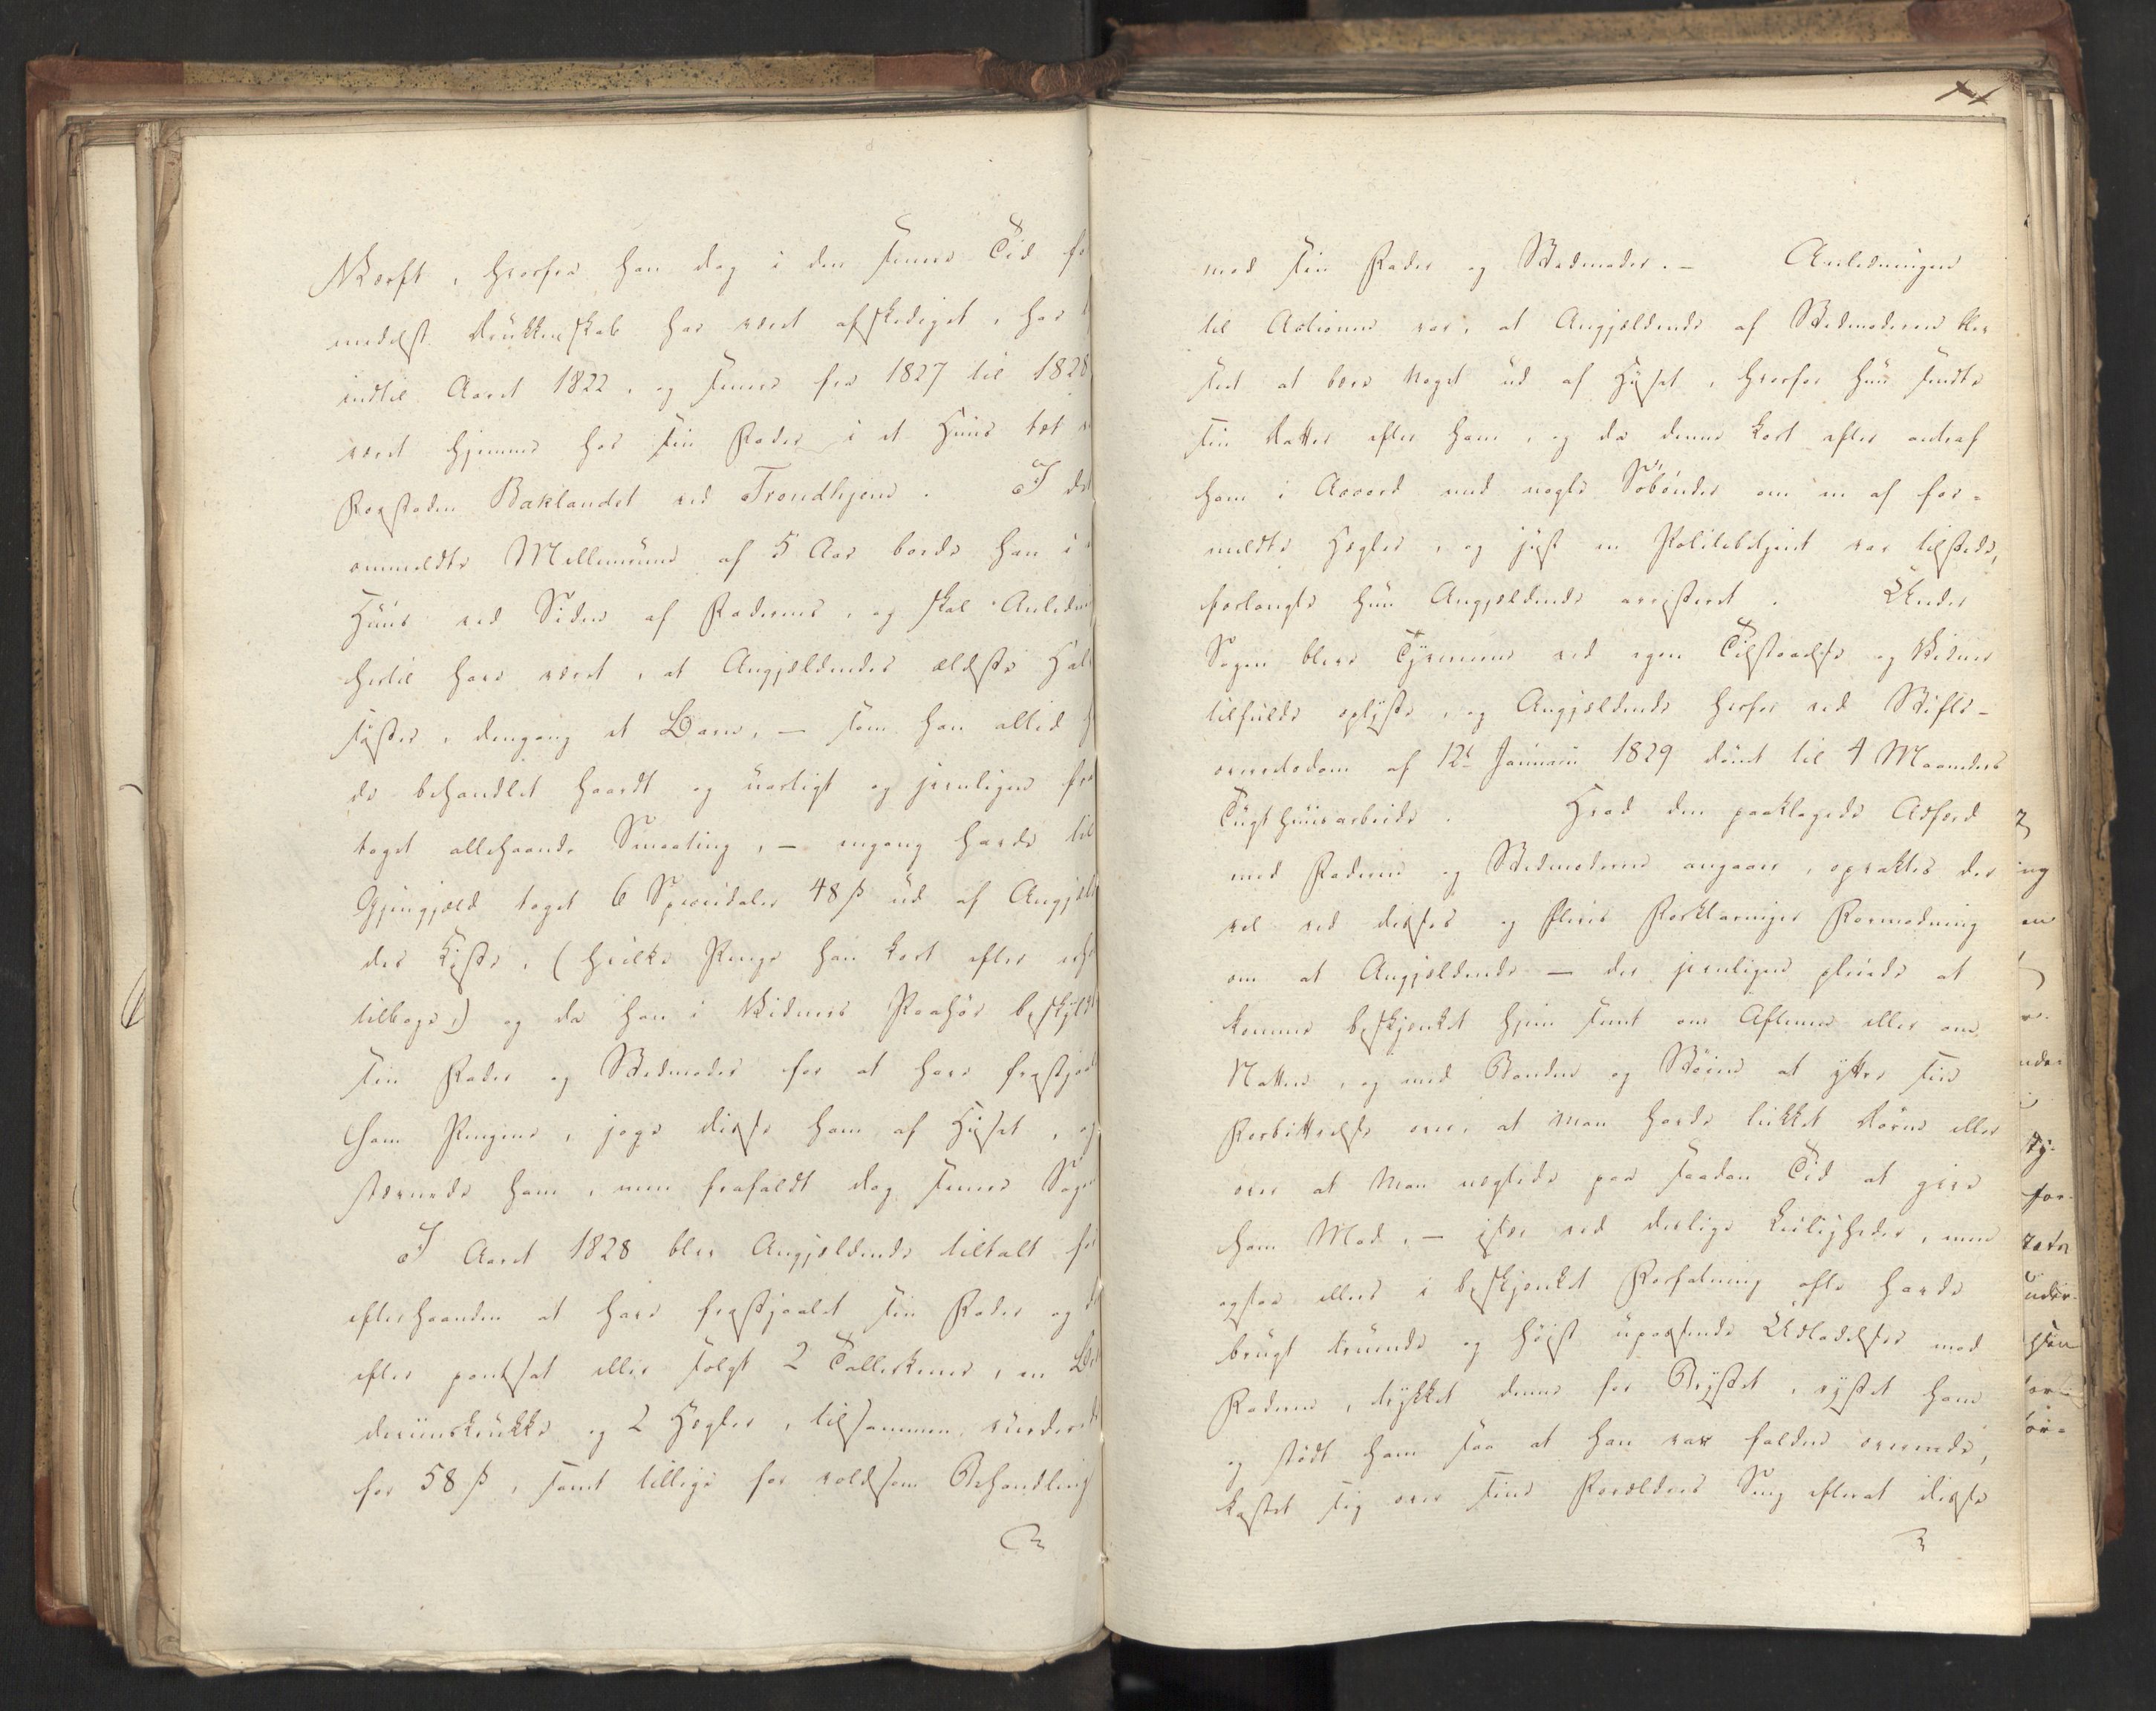 Værft, hvorfra han dog i den senere Tid for
medelst Drukkenskab har været afskediget, har
indtil Aaret 1822, og senere fra 1827 til 1828
været hjemme hos sin Fader i et Huus tæt
Forstaden Baklandet ved Trondhjem. I det
ommeldte Mellemrum af 5 Aar boede han i
Huus ved Siden af Faderens, og skal Anlednin
hertil have været, at Angjældendes ældste Hal
søster, dengang et Barn, — som han altid h
de behandlet haardt og uartigt og jevnligen fra
taget allehaande Smaating, — engang havde til
Gjengjæld taget 6 Speciedaler 48 ß ud af Angjæl
des Kiste, (hvilke Penge han kort efter erh
tilbage,) og da han i Vidners Paahør beskyldt
sin Fader og Stedmoder for at have frastjaal
ham Pengene, joge disse ham af Huset, og
stævnede ham, men frafaldt dog senere Sagen
I Aaret 1828 blev Angjældende tiltalt for
efterhaanden at have frastjaalet sin Fader og d
efter pantsat eller solgt 2 Tallerkener, en Bræ
deviinskrukke og 2 Hegler, tilsammen vurdere
for 58 ß, samt tillige for voldsom Behandling
mod sin Fader og Stedmoder. — Anledningen
til Actionen var, at Angjældende af Stedmoderen blev
seet at bære Noget ud af Huset, hvorfor hun sendte
sin Datter efter ham, og da denne kort efter antraf
ham i Accord med nogle Søbønder om en af for-
meldte Hegler, og just en Politibetjent var tilstede,
forlangte hun Angjældende arresteret. Under
Sagen bleve Tyverierne ved egen Tilstaaelse og Vidner
tilfulde oplyste, og Angjældende herfor ved Stifts-
overretsdom af 12te Januari 1829 dømt til 4 Maaneders
Tugthuusarbeide. Hvad den paaklagede Adfærd
mod Faderen og Stedmoderen angaaer, opvaktes der
vel ved disses og Fleres Forklaringer Formodning
om at Angjældende — der jevnligen pleiede at
komme beskjenket hjem seent om Aftenen eller om
Natten, og med Banden og Støien at yttre sin
Forbittrelse over, at man havde lukket Døren eller
over at man negtede paa saadan Tid at give
ham Mad, — især ved deslige Leiligheder, men
ogsaa ellers i beskjenket Forfatning ofte havde
brugt truende og høist upassende Udladelser mod
Faderen, trykket denne for Brystet, rystet ham
og stødt ham saa at han var falden overende,
kastet sig over sine Forældres Seng efterat disse